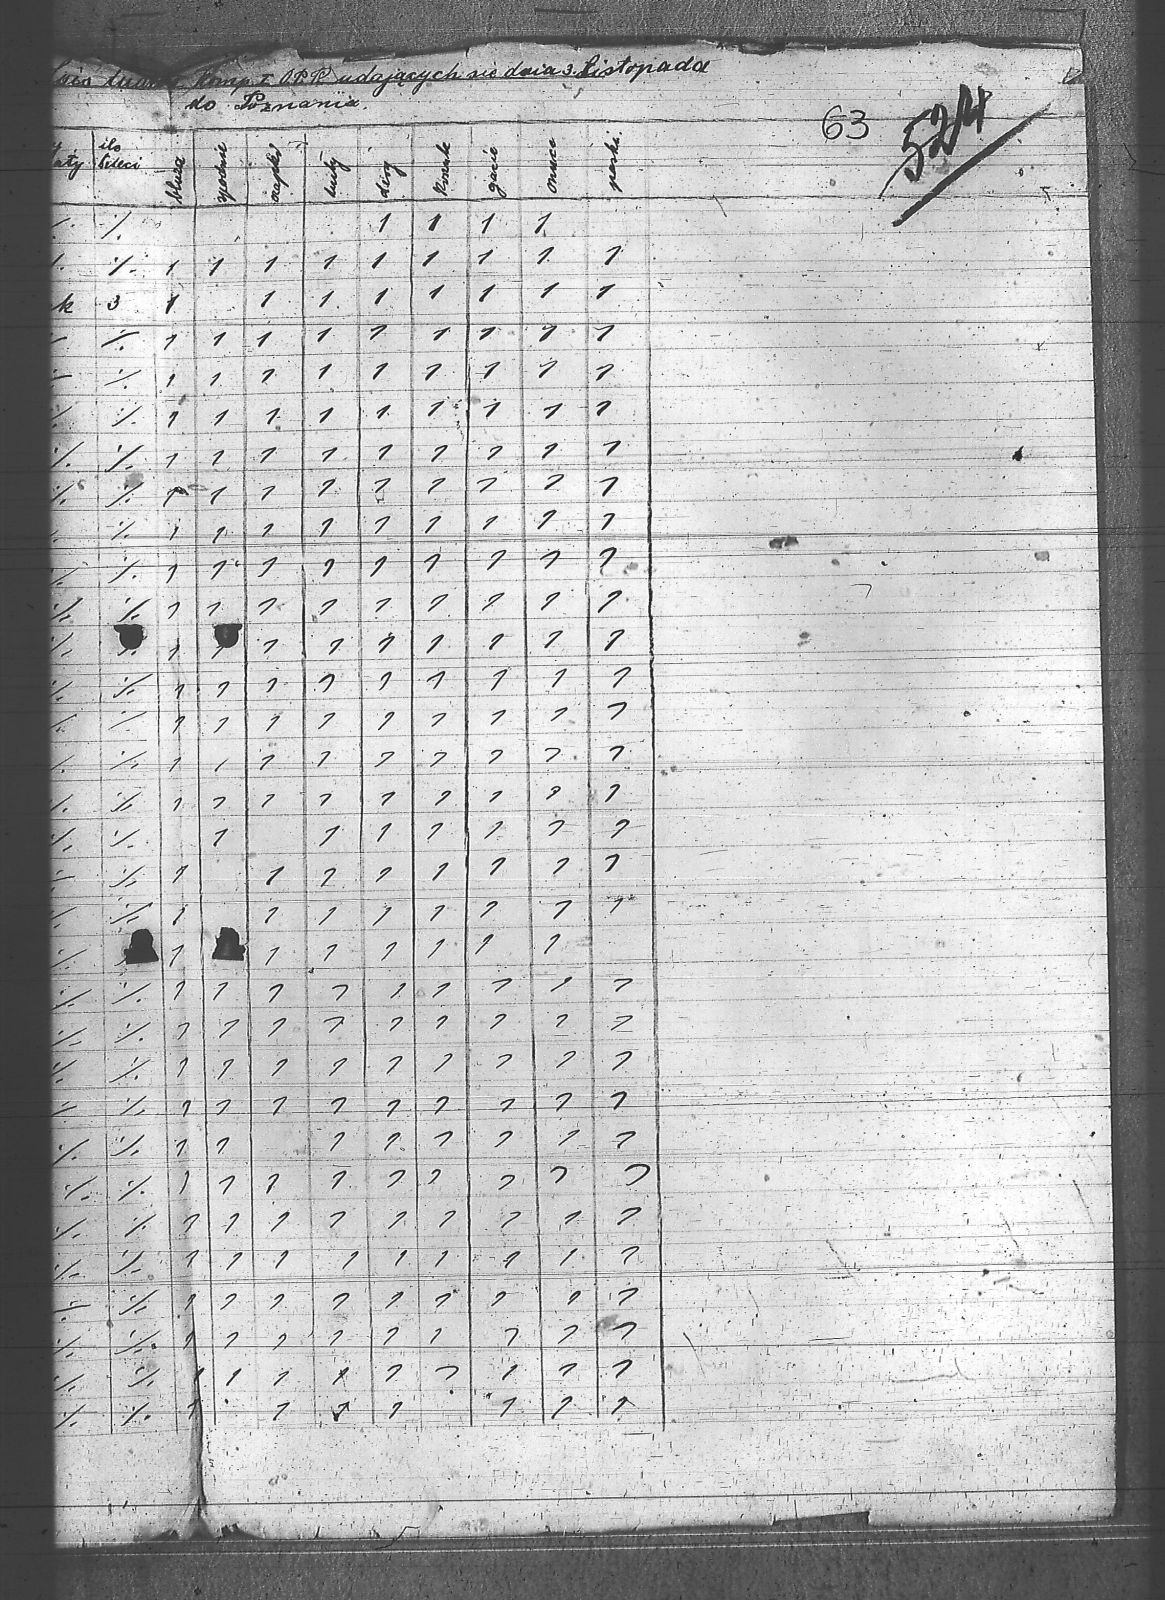 udających się dnia 3. Listopada
do Poznania.
63
524
ilo dzieci bluza spodnie czapki buty gacie onuce paski
/. /. 1 1 1 1
/. /. 1 1 1 1 1 1 1 1 1
k 3 1 1 1 1 1 1 1 1
/. /. 1 1 1 1 1 1 1 1 1
/. /. 1 1 1 1 1 1 1 1 1
/. /. 1 1 1 1 1 1 1 1 1
/. /. 1 1 1 1 1 1 1 1 1
/. /. 1 1 1 1 1 1 1 1 1
/. /. 1 1 1 1 1 1 1 1 1
/. /. 1 1 1 1 1 1 1 1 1
/. /. 1 1 1 1 1 1 1 1 1
/. /. 1 1 1 1 1 1 1 1 1
/. /. 1 1 1 1 1 1 1 1 1
/. /. 1 1 1 1 1 1 1 1 1
/. /. 1 1 1 1 1 1 1 1 1
/. /. 1 1 1 1 1 1 1 1 1
/. /. 1 1 1 1 1 1 1
/. /. 1 1 1 1 1 1 1 1
/. /. 1 1 1 1 1 1 1 1
/. 1 1 1 1 1 1 1
/. /. 1 1 1 1 1 1 1 1 1
/. /. 1 1 1 1 1 1 1 1 1
/. /. 1 1 1 1 1 1 1 1 1
/. /. 1 1 1 1 1 1 1 1 1
/. /. 1 1 1 1 1 1 1 1
/. /. 1 1 1 1 1 1 1 1 1
/. /. 1 1 1 1 1 1 1 1 1
/. /. 1 1 1 1 1 1 1 1 1
/. /. 1 1 1 1 1 1 1 1 1
/. /. 1 1 1 1 1 1 1 1 1
/. /. 1 1 1 1 1 1 1 1 1
/. /. 1 1 1 1 1 1 1